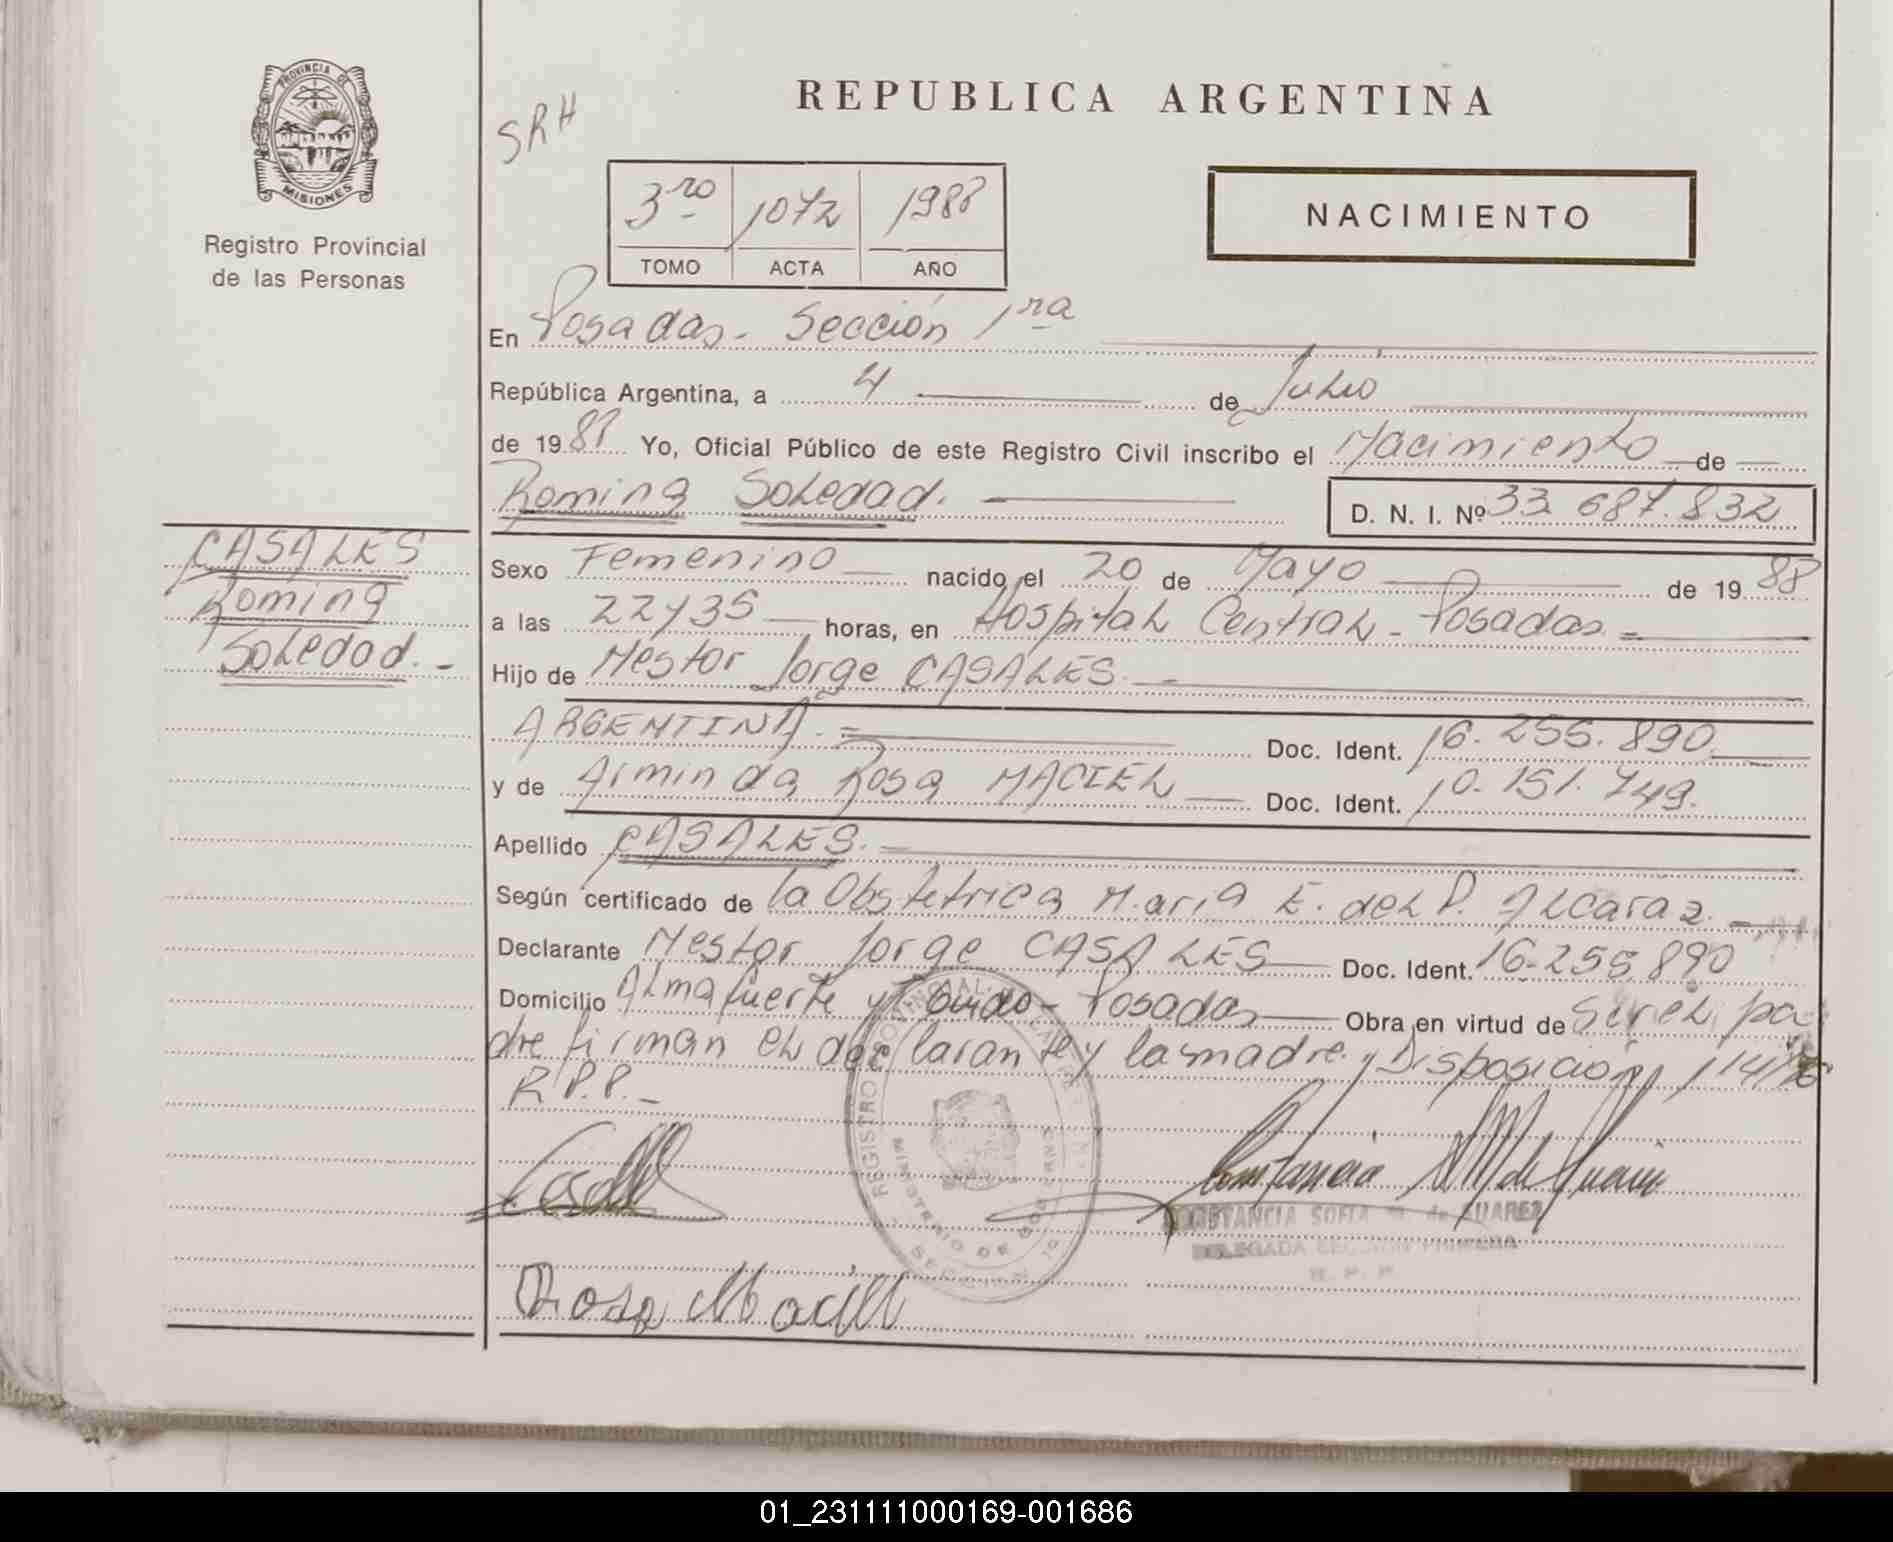 PROVINCIA DE
MISIONES
Registro Provincial
de las Personas
SRH
REPUBLICA ARGENTINA
3ro 1072 1988
TOMO ACTA AÑO
NACIMIENTO
En Posadas - Sección 1ra
República Argentina, a 4 de Julio
de 1988 Yo, Oficial Público de este Registro Civil inscribo el Nacimiento de
Romina Soledad. D. N. I. Nº 33.687.832
CASALES
Romina
Soledad.-
Sexo Femenino nacido el 20 de Mayo de 1988
a las 22y35 horas, en Hospital Central - Posadas
Hijo de Nestor Jorge CASALES.
ARGENTINA.= Doc. Ident. 16.255.890
y de Arminda Rosa MACIEL Doc. Ident. 10.151.749.
Apellido CASALES.
Según certificado de la Obstétrica Maria E. del P. Alcaraz
Declarante Nestor Jorge CASALES Doc. Ident. 16.255.890
Domicilio Almafuerte y Posadas Obra en virtud de Ser el pa
dre firman el declarante y la madre y Disposición
R.P.P.-
REGISTRO PROVINCIAL DE LAS
MINISTERIO DE GOBIERNO
SECCION
CONSTANCIA SOFIA M. de SUAREZ
DELEGADA SECCION PRIMERA
R. P. P.
Rosa Maciel
01_231111000169-001686